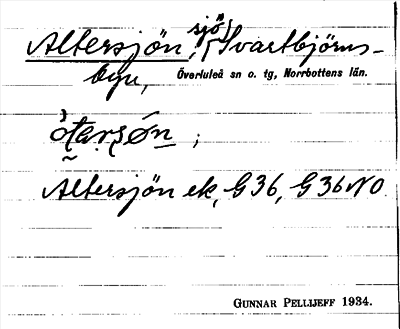 Altersjön, sjö, Svartbjörns-
byn, Överluleå sn o. tg, Norrbottens län.
Altersjön ek, G36, G36NO
GUNNAR PELLIJEFF 1934.